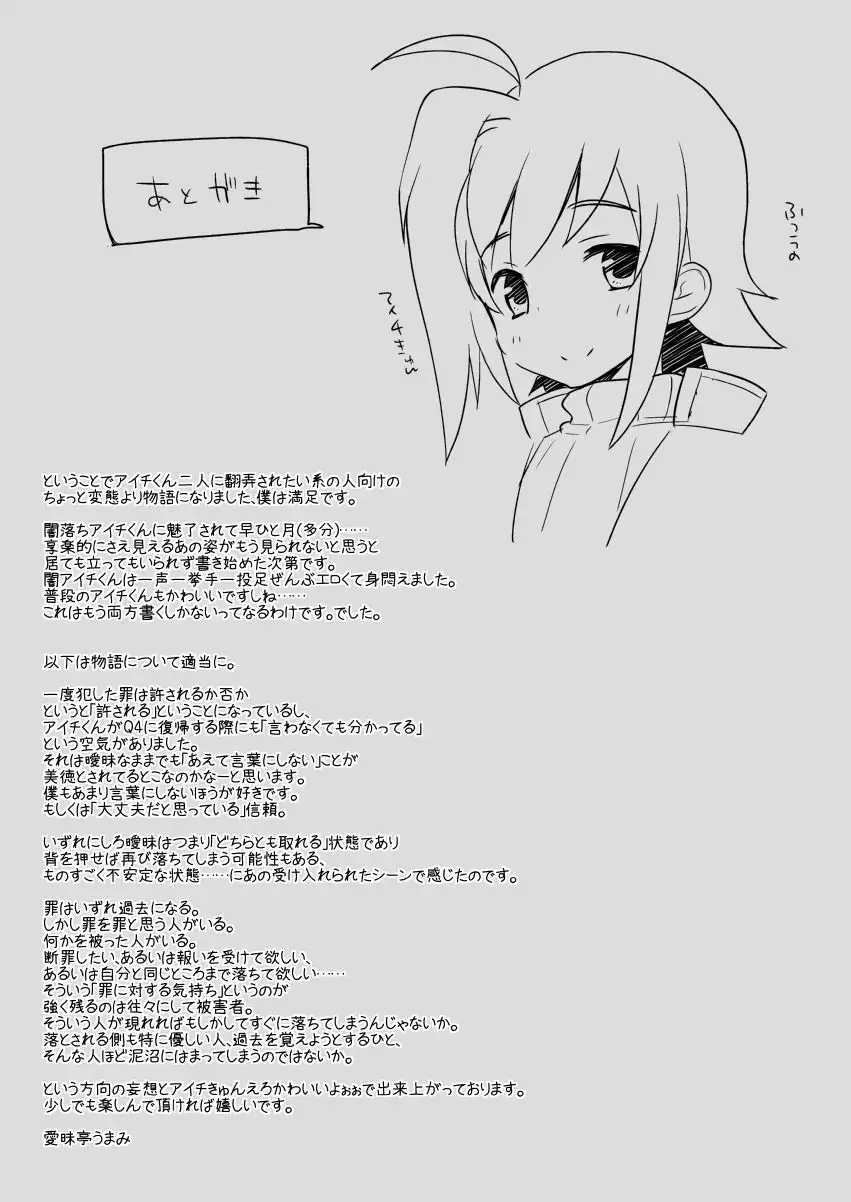 あとがき
ふつうの
アイチきゅん
ということでアイチくん二人に翻弄されたい系の人向けの
ちょっと変態より物語になりました、僕は満足です。
闇落ちアイチくんに魅了されて早ひと月(多分)……
享楽的にさえ見えるあの姿がもう見られないと思うと
居ても立ってもいられず書き始めた次第です。
闇アイチくんは一声一挙手一投足ぜんぶエロくて身悶えました。
普段のアイチくんもかわいいですしね……
これはもう両方書くしかないってなるわけです。でした。
以下は物語について適当に。
一度犯した罪は許されるか否か
というと「許される」ということになっているし、
アイチくんがQ4に復帰する際にも「言わなくても分かってる」
という空気がありました。
それは曖昧なままでも「あえて言葉にしない」ことが
美徳とされてるとこなのかなーと思います。
僕もあまり言葉にしないほうが好きです。
もしくは「大丈夫だと思っている」信頼。
いずれにしろ曖昧はつまり「どちらとも取れる」状態であり
背を押せば再び落ちてしまう可能性もある、
ものすごく不安定な状態……にあの受け入れられたシーンで感じたのです。
罪はいずれ過去になる。
しかし罪を罪と思う人がいる。
何かを被った人がいる。
断罪したい、あるいは報いを受けて欲しい、
あるいは自分と同じところまで落ちて欲しい……
そういう「罪に対する気持ち」というのが
強く残るのは往々にして被害者。
そういう人が現れればもしかしてすぐに落ちてしまうんじゃないか。
落とされる側も特に優しい人、過去を覚えようとするひと、
そんな人ほど泥沼にはまってしまうのではないか。
という方向の妄想とアイチきゅんえろかわいいよぉぉで出来上がっております。
少しでも楽しんで頂ければ嬉しいです。
愛昧亭うまみ